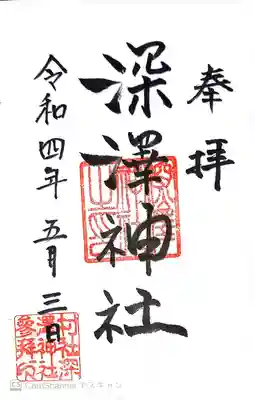 奉拝
深澤神社
令和四年五月三日
村社深
澤神社
參拜之印
CamScanner でスキャン